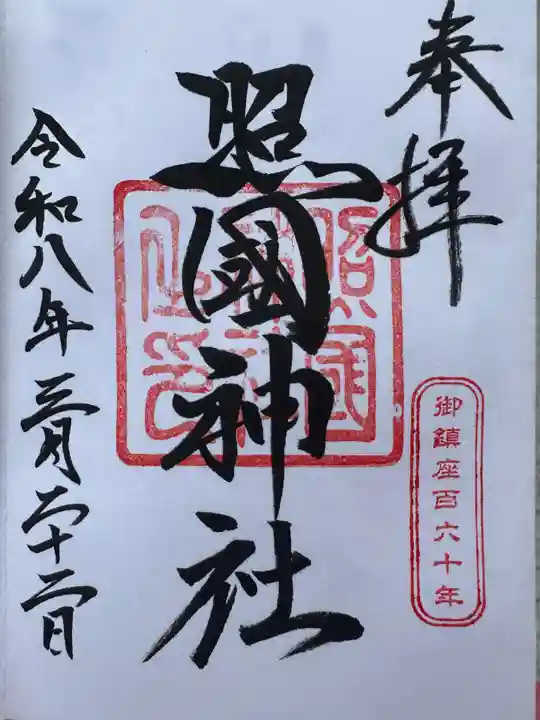 奉拝
照國神社
御鎮座百六十年
令和八年三月二十二日